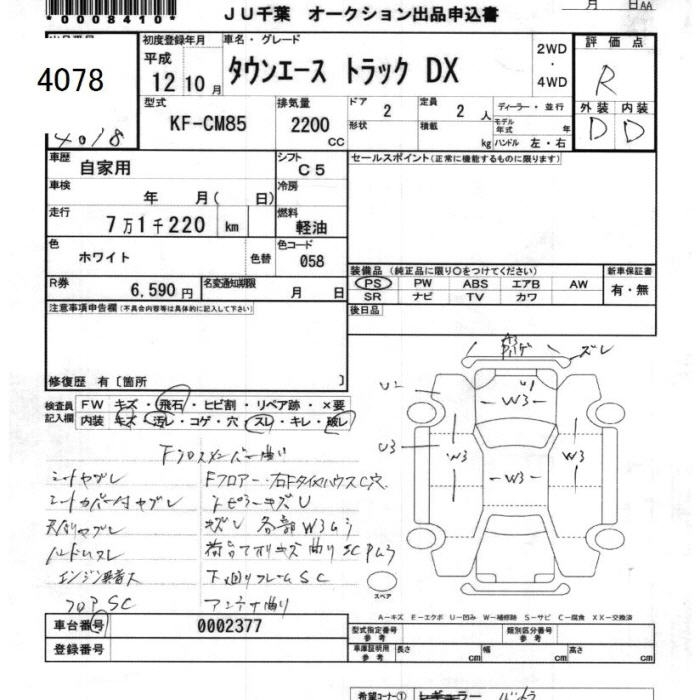 *0008410*
JU千葉 オークション出品申込書
月 日 AA
4078
初度登録年月
平成
12 10月
車名・グレード
タウンエース トラック DX
2WD
・
4WD
評価点
R
型式
KF-CM85
排気量
2200
CC
ドア 2
形状
定員 2 人
積載 kg
ディーラー・並行
モデル年式 年
ハンドル 左・右
外装 内装
D D
車歴
自家用
シフト
C5
セールスポイント(正常に機能するものに限ります)
車検
年 月( 日)
冷房
走行
7万1千220 km
燃料
軽油
色
ホワイト
色替
色コード
058
R券
6,590円
名変通知期限
月 日
装備品 (純正品に限り○をつけてください)
PS PW ABS エアB AW
SR ナビ TV カワ
新車保証書
有・無
後日品
注意事項申告欄(不具合内容等は具体的に記入して下さい)
修復歴 有〔箇所 〕
検査員
記入欄
FW キズ・飛石・ヒビ割・リペア跡・×要
内装 キズ・汚レ・コゲ・穴・スレ・キレ・破レ
シートヤブレ
シートカバー付ヤブレ
ハンドルスレ
フロアSC
下廻リフレームSC
アンテナ曲り
ズレ
U2
U1
W3
U3
W3
W3
W3
スペア
A-キズ E-エクボ U-凹み W-補修跡 S-サビ C-腐食 XX-交換済
車台番号
0002377
登録番号
型式指定番号
参考
類別区分番号
参考
車庫証明用
参考
長さ cm
幅 cm
高さ cm
希望コーナー① レギュラー